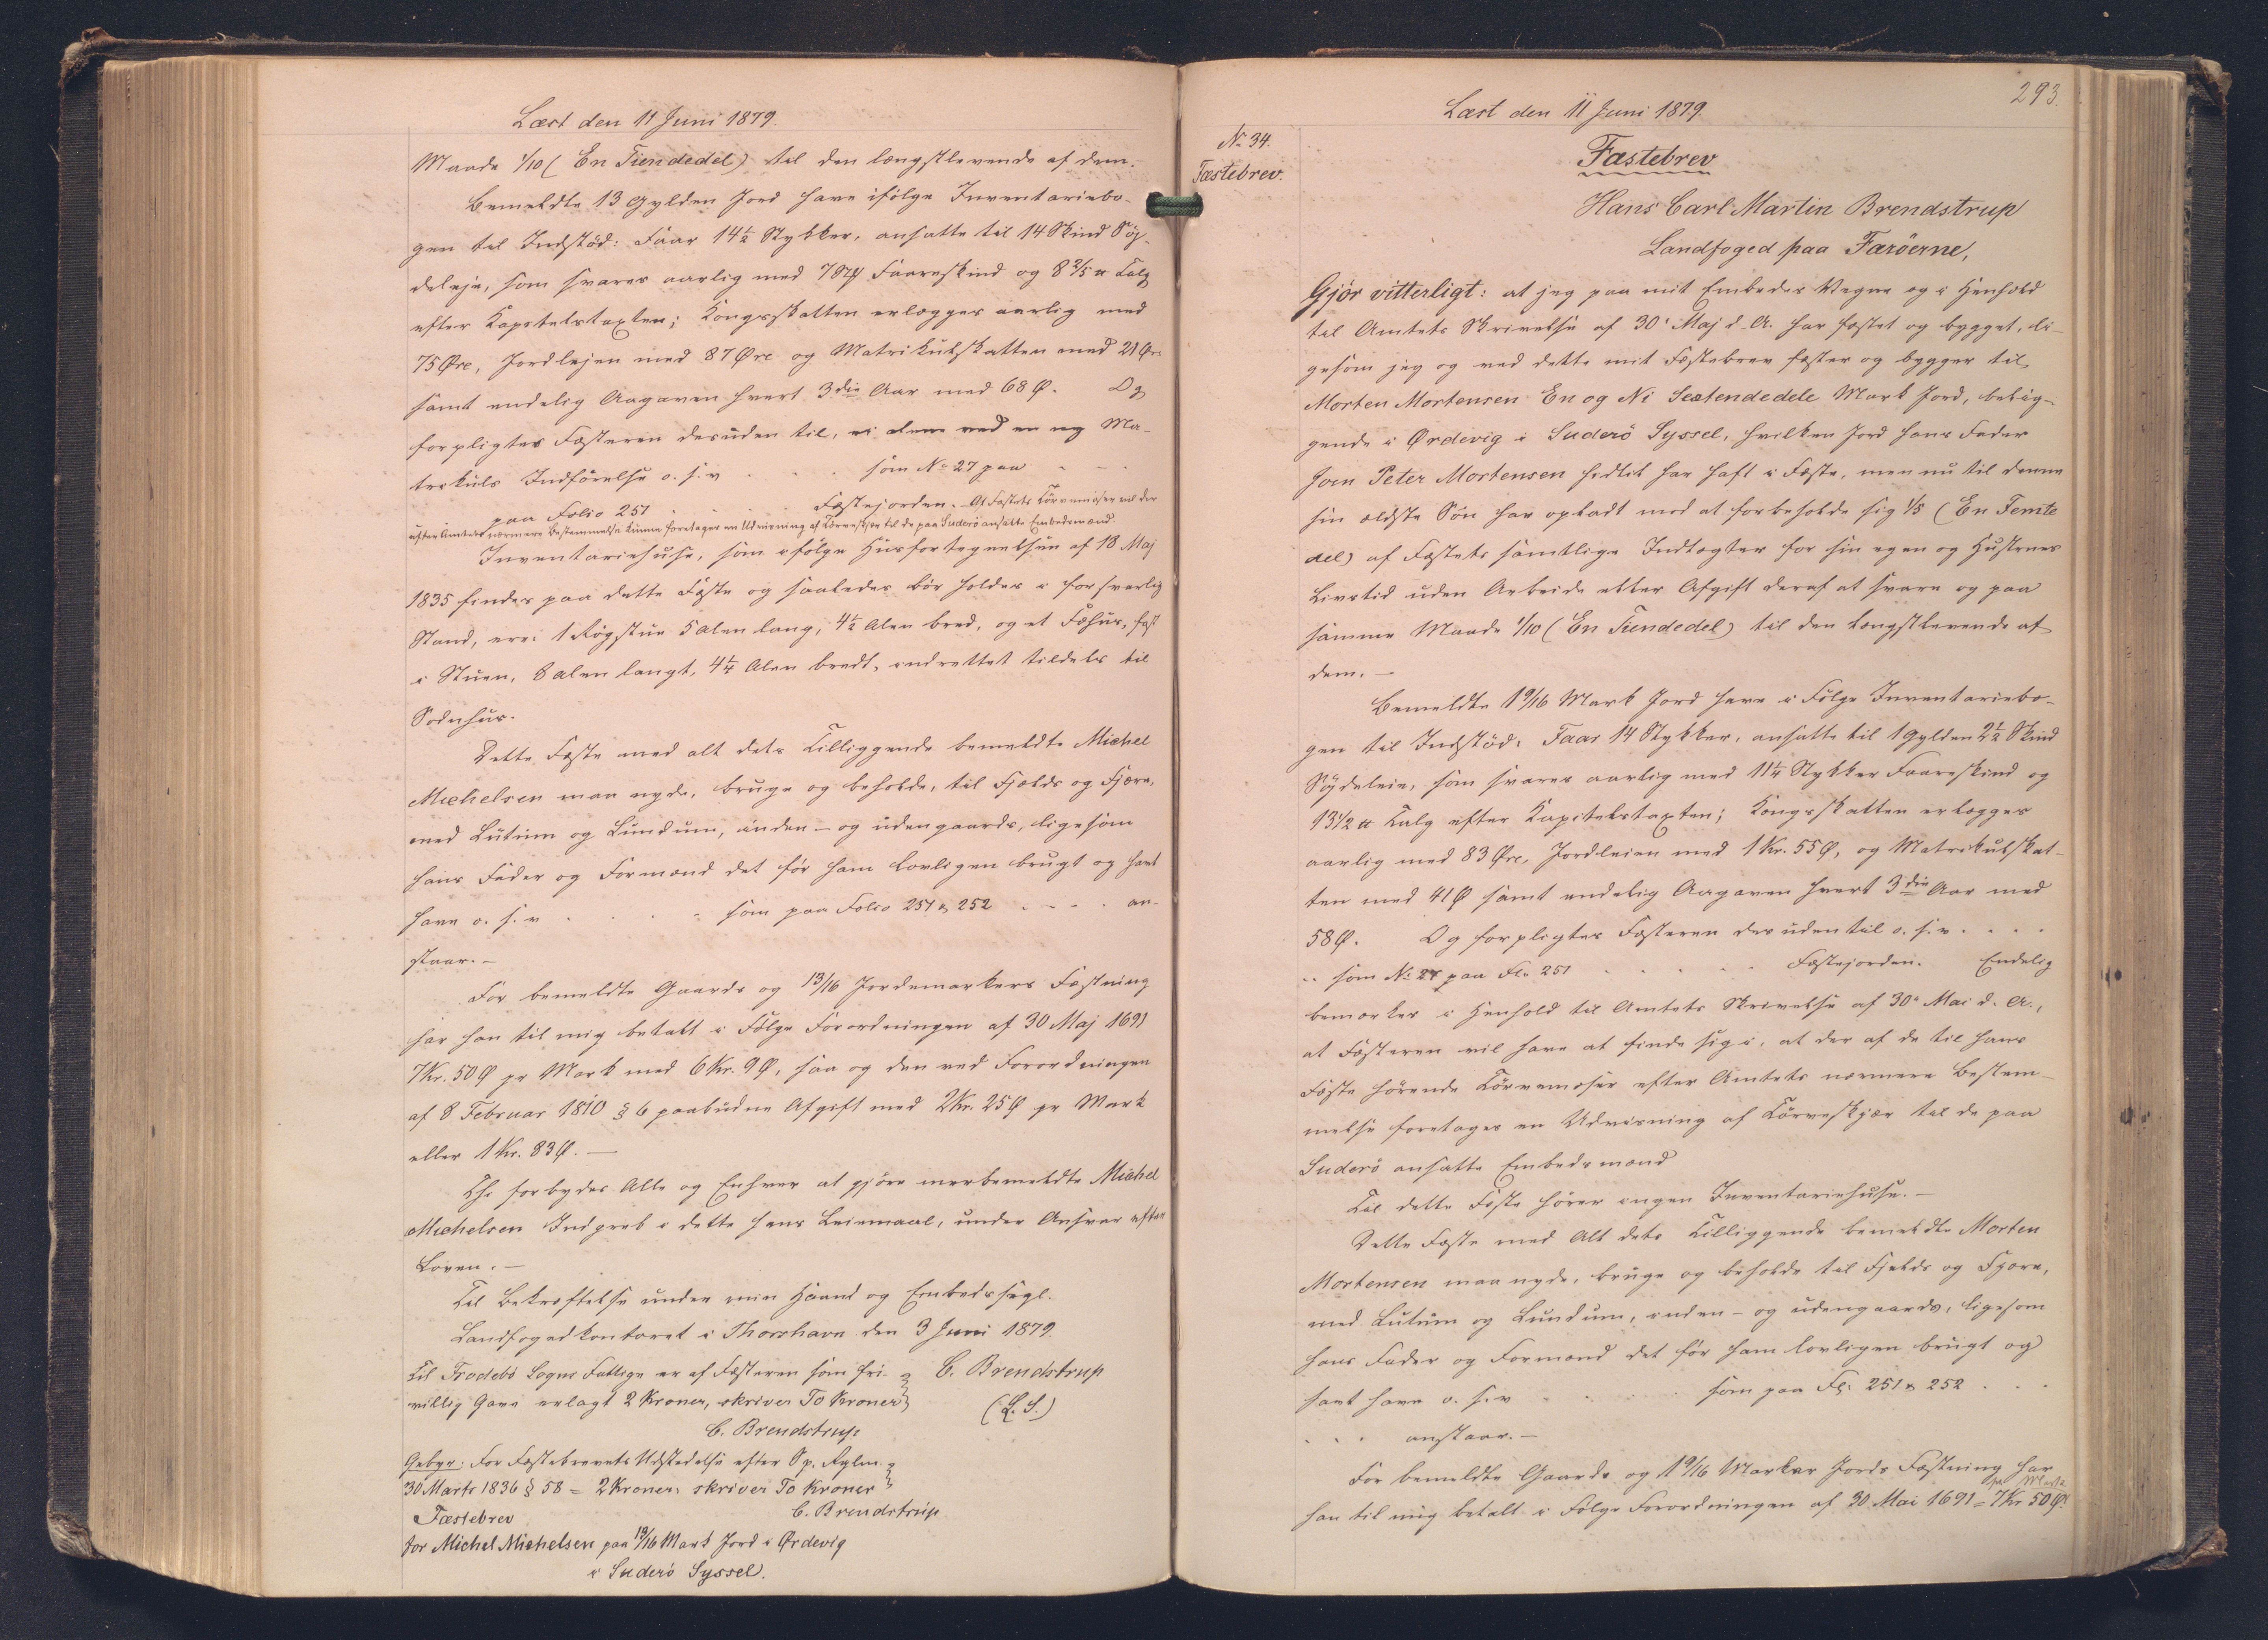 Læst den 11 Juni 1879.
Maade 1/10 (En Tiendedel) til den længstlevende af dem.
Bemeldte 13 Gylden Jord have ifölge Inventariebo-
gen til Indstöd: Faar 14½ Stykker, ansatte til 14 Skind Söj-
deleje, som svares aarlig med 7 Stk Faareskind og 8 2/5 ℔ Talg
efter Kapitelstaxten; Kongsskatten erlægges aarlig med
75 Øre, Jordlejen med 87 Øre og Matrikulskatten med 21 Øre
samt endelig Aagaven hvert 3die Aar med 68 Ø. Og
forpligtes Fæsteren desuden til, ei alene ved en ny Ma-
trikuls Indförelse o. s. v . . . som No 27 paa . . .
paa Folio 251 . . . Fæstejorden. At Fæstets Törvemoser vil der
efter Amtets nærmere Bestemmelse kunne foretages en Udvisning af Törveskjær til de paa Suderö ansatte Embedsmænd.
Inventariehuse, som ifölge Husfortegnelsen af 18 Maj
1835 findes paa dette Fæste og saaledes bör holdes i forsvarlig
Stand, ere: 1 Rögstue 5 Alen lang, 4½ Alen bred, og et Fæhus, fast
i Stuen, 8 Alen langt, 4¼ Alen bredt, indrettet tildels til
Sodnhus.
Dette Fæste med alt dets Tilliggende bemeldte Michel
Michelsen maa nyde, bruge og beholde, til Fjelds og Fjære,
med Lutum og Lundum, inden- og udengaards, ligesom
hans Fader og Formænd det för ham lovligen brugt og havt
have o. s. v . . . . som paa Folio 251 & 252 . . . . an-
staar. —
For bemeldte Gaards og 13/16 Jordemarkers Fæstning
har han til mig betalt i Fölge Forordningen af 30 Maj 1691
7 Kr. 50 Ø pr Mark med 6 Kr. 9 Ø, saa og den ved Forordningen
af 8 Februar 1810 § 6 paabudne Afgift med 2 Kr. 25 Ø pr Mark
eller 1 Kr. 83 Ø. —
Thi forbydes Alle og Enhver at gjöre merbemeldte Michel
Michelsen Indgreb i dette hans Leiemaal, under Ansvar efter
Loven. —
Til Bekræftelse under min Haand og Embedssegl.
Landfogedkontoret i Thorshavn den 3 Juni 1879.
Til Frodebö Sogns Fattige er af Fæsteren som fri- C. Brendstrup
villig Gave erlagt 2 Kroner, skriver To Kroner (L. S.)
C. Brendstrup
Gebyr: For Fæstebrevets Udstedelse efter Sp. Rglm.
30 Marts 1836 § 58 = 2 Kroner, skriver To Kroner
C. Brendstrup
Fæstebrev
for Michel Michelsen paa 13/16 Mark Jord i Ørdevig
i Suderö Syssel.
293.
Læst den 11 Juni 1879.
No 34.
Fæstebrev.
Fæstebrev
Hans Carl Martin Brendstrup
Landfoged paa Færöerne,
Gjör vitterligt: at jeg paa mit Embedes Vegne og i Henhold
til Amtets Skrivelse af 30' Maj d. A. har fæstet og bygget, li-
gesom jeg og ved dette mit Fæstebrev fæster og bygger til
Morten Mortensen En og Ni Sextendedele Mark Jord, belig-
gende i Ørdevig i Suderö Syssel, hvilken Jord hans Fader
Joen Peter Mortensen hidtil har haft i Fæste, men nu til denne
sin ældste Sön har opladt mod at forbeholde sig 1/5 (En Femte
del) af Fæstets samtlige Indtægter for sin egen og Hustrues
Livstid uden Arbeide eller Afgift deraf at svare og paa
samme Maade 1/10 (En Tiendedel) til den længstlevende af
dem. —
Bemeldte 1 9/16 Mark Jord have i Fölge Inventariebo-
gen til Indstöd: Faar 14 Stykker, ansatte til 1 Gylden 2½ Skind
Söjdeleie, som svares aarlig med 11¼ Stykker Faareskind og
13 1/2 ℔ Talg efter Kapitelstaxten; Kongsskatten erlægges
aarlig med 83 Øre, Jordleien med 1 Kr. 55 Ø, og Matrikulskat-
ten med 41 Ø samt endelig Aagaven hvert 3die Aar med
58 Ø. Og forpligtes Fæsteren desuden til o. s. v . . . .
.. som No 27 paa Fl. 251 . . . . . Fæstejorden. Endelig
bemærkes i Henhold til Amtets Skrivelse af 30' Mai d. A.,
at Fæsteren vil have at finde sig i, at der af de til hans
Fæste hörende Törvemoser efter Amtets nærmere Bestem-
melse foretages en Udvisning af Törveskjær til de paa
Suderö ansatte Embedsmænd
Til dette Fæste hörer ingen Inventariehuse. —
Dette Fæste med Alt dets Tilliggende bemeldte Morten
Mortensen maa nyde, bruge og beholde til Fjelds og Fjære,
med Lutum og Lundum, inden- og udengaards, ligesom
hans Fader og Formænd det för ham lovligen brugt og
havt have o. s. v . . . . som paa Fl: 251 & 252 . . .
. . . anstaar. —
For bemeldte Gaards og 1 9/16 Marker Jords Fæstning har
han til mig betalt i Fölge Forordningen af 30 Mai 1691 = 7 Kr 50 Ø. pr Mark